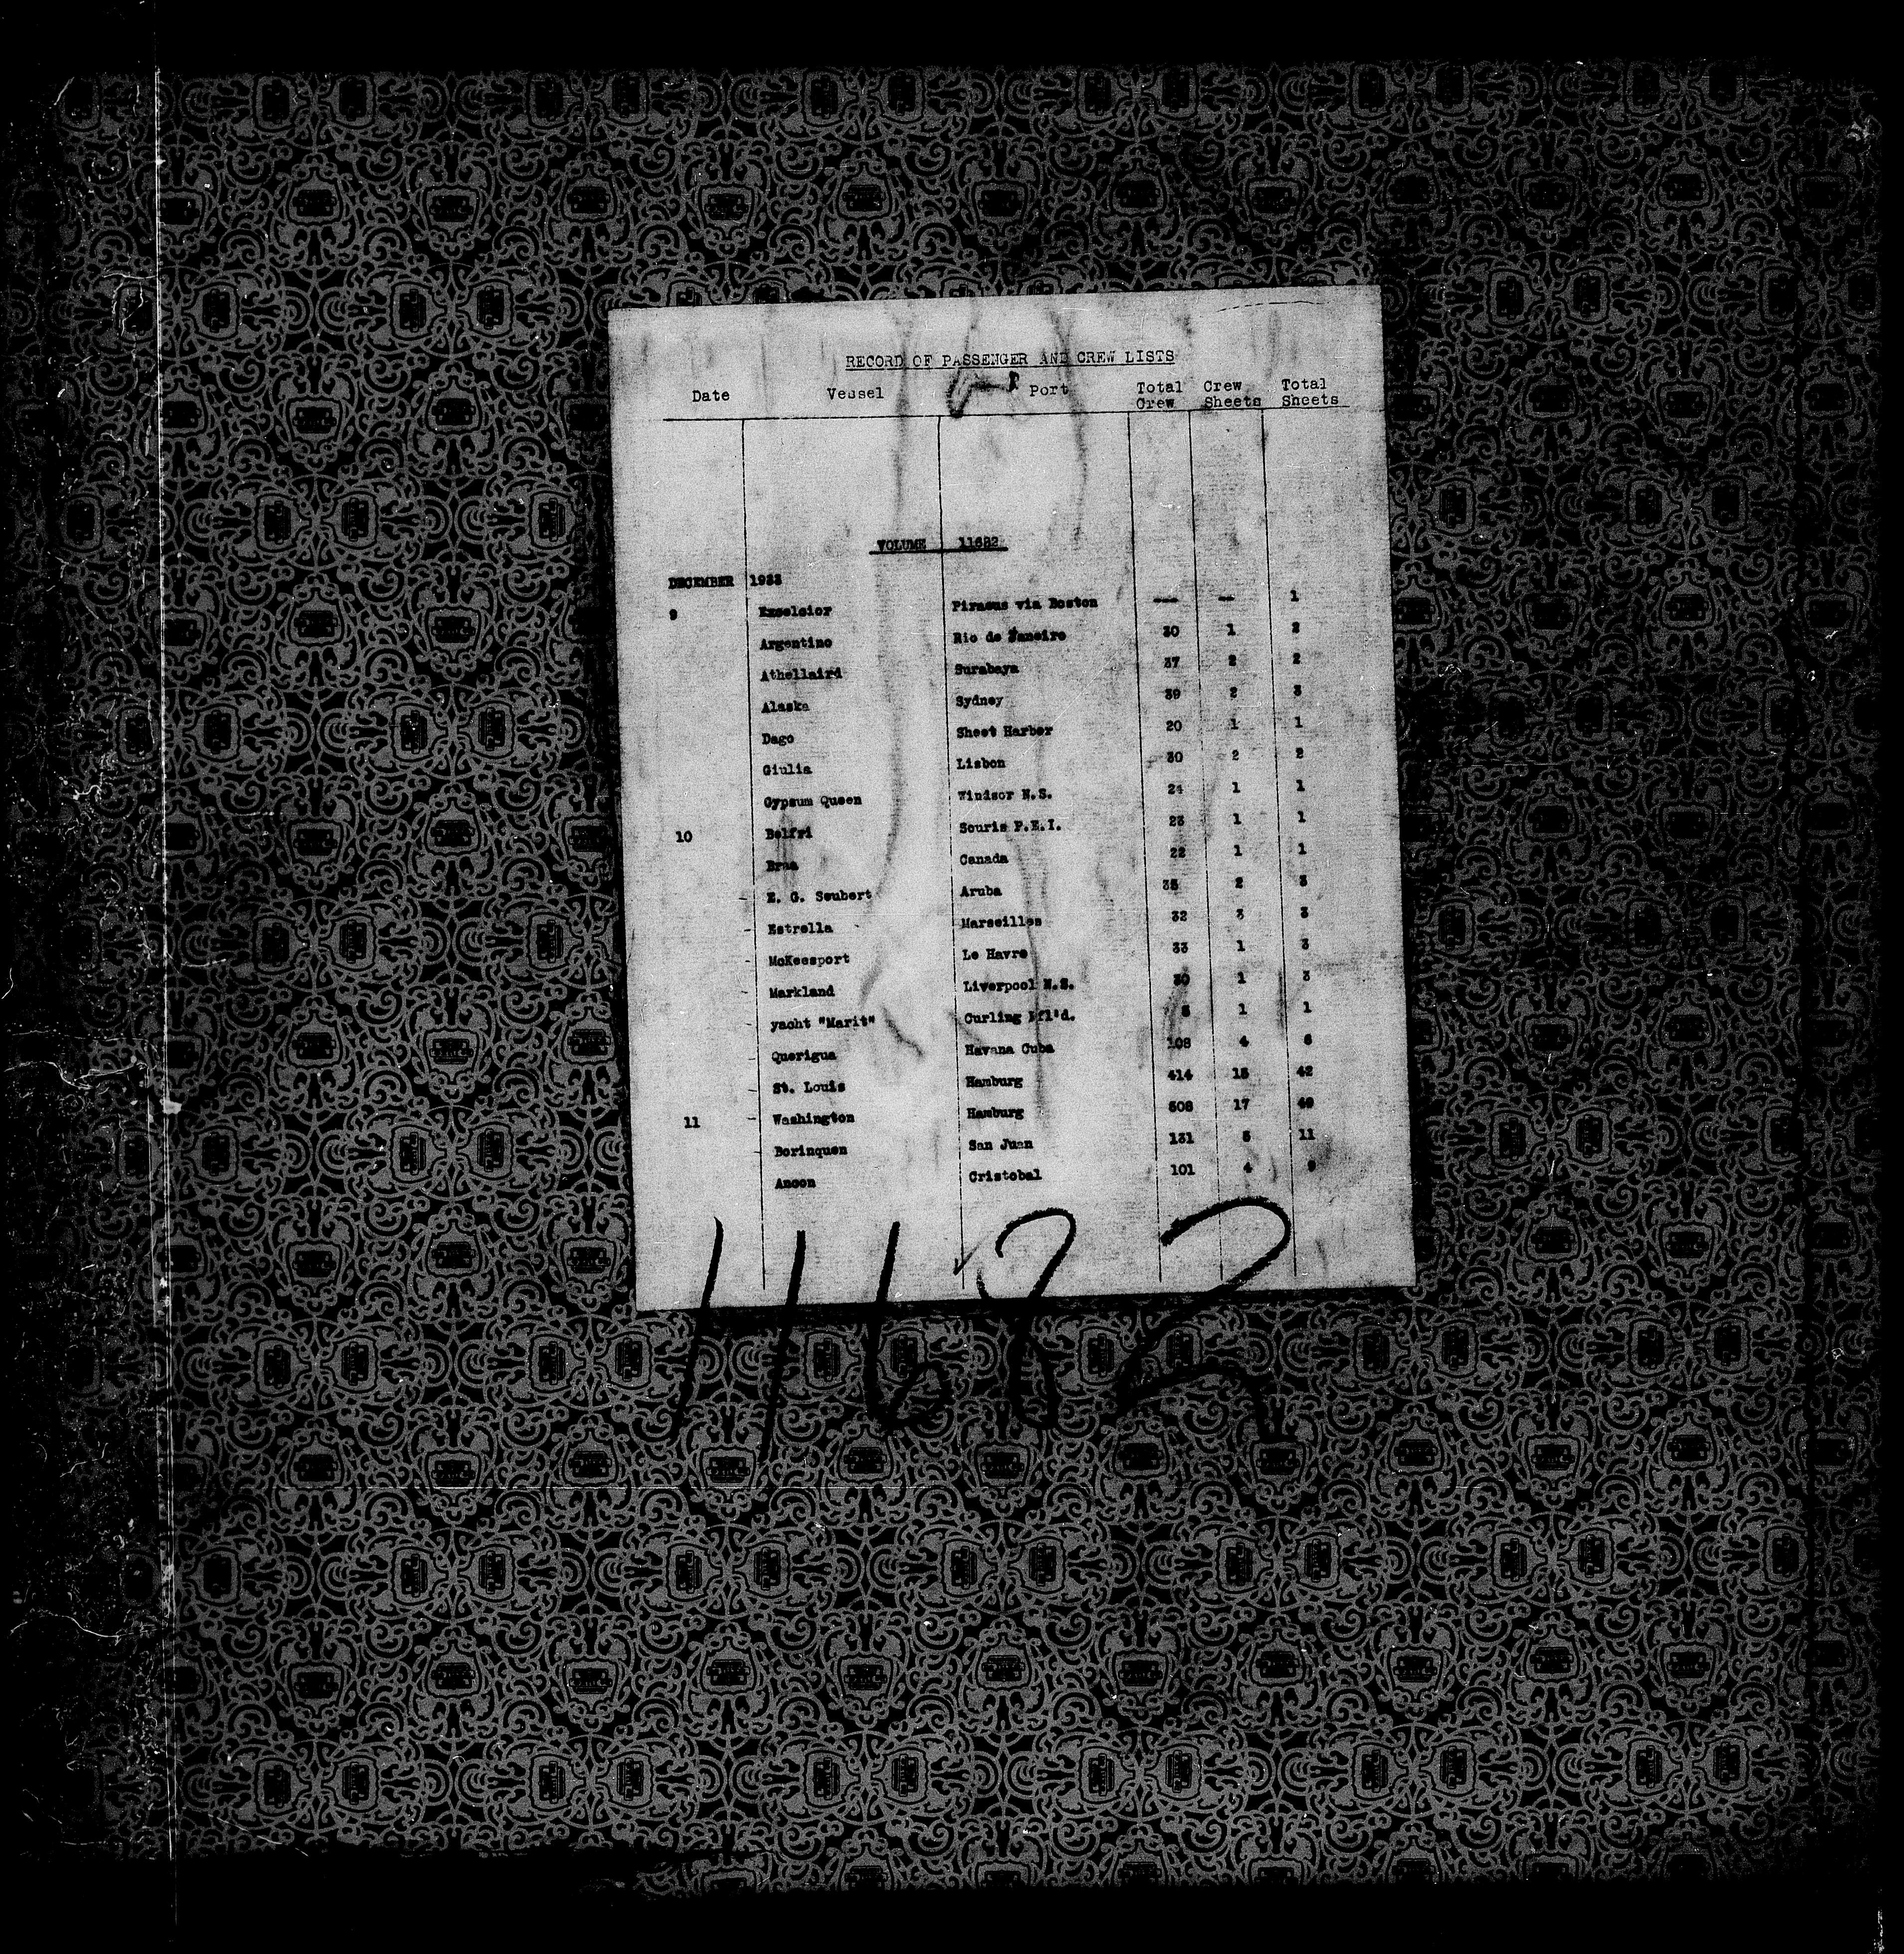 RECORD OF PASSENGER AND CREW LISTS
Date Vessel Port Total Crew Crew Sheets Total Sheets
VOLUME 11682
DECEMBER 1933
9 Excelsior Piraeus via Boston --- -- 1
Argentino Rio de Janeiro 30 1 2
Athellaird Surabaya 37 2 2
Alaska Sydney 39 2 3
Dago Sheet Harbor 20 1 1
Giulia Lisbon 30 2 2
Gypsum Queen Windsor N.S. 24 1 1
10 Belfri Souris P.E.I. 23 1 1
Canada 22 1 1
E. G. Seubert Aruba 35 2 3
Estrella Marseilles 32 3 3
McKeesport Le Havre 33 1 3
Markland Liverpool N.S. 30 1 3
yacht "Marit" Curling Nfl'd. 1 1
Querigua Havana Cuba 108 4 6
St. Louis Hamburg 414 15 42
11 Washington Hamburg 508 17 49
Borinquen San Juan 131 5 11
Ancon Cristobal 101 4 9
11682